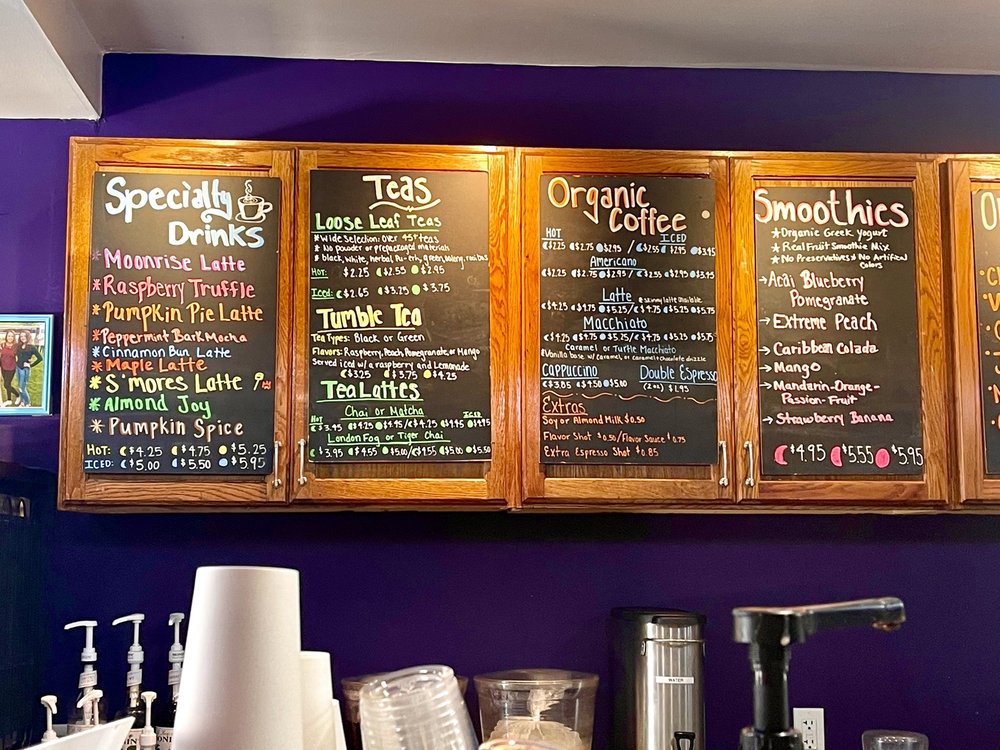 Specialty
Drinks
* Moonrise Latte
* Raspberry Truffle
* Pumpkin Pie Latte
* Peppermint Bark Mocha
* Cinnamon Bun Latte
* Maple Latte
* S'mores Latte
* Almond Joy
* Pumpkin Spice
HOT: $4.25 $4.75 $5.25
ICED: $5.00 $5.50 $5.95
Teas
Loose Leaf Teas
* Wide Selection: Over 45+ teas
* No powder or prepackaged materials
* black, white, herbal, Pu-erh, green, oolong, rooibos
Hot: $2.25 $2.55 $2.95
Iced: $2.65 $3.25 $3.75
Tumble Tea
Tea Types: Black or Green
Flavors: Raspberry, Peach, Pomegranate, or Mango
Served iced w/ a raspberry and Lemonade
$3.25 $3.75 $4.25
Tea Lattes
Chai or Matcha
Hot Iced
$3.95 $4.25 $4.95 / $4.25 $4.45 $4.95
London Fog or Tiger Chai
$3.95 $4.55 $5.00 / $4.55 $5.00 $5.50
Organic
Coffee
HOT ICED
$2.25 $2.75 $2.95 / $2.55 $2.95 $3.95
Americano
$2.25 $2.75 $2.95 / $2.55 $2.95 $3.95
Latte * skinny latte available
$4.25 $4.75 $5.25 / $4.75 $5.25 $5.75
Macchiato
$4.75 $5.25 / $4.75 $5.25 $5.75
Caramel or Turtle Macchiato
* Vanilla base w/ caramel, or caramel + chocolate drizzle
Cappuccino Double Espresso
$3.85 $4.50 $5.00 (2 oz) $1.95
Extras
Soy or Almond Milk $0.50
Flavor Shot $0.50 / Flavor Sauce $0.75
Extra Espresso Shot $0.85
Smoothies
* Organic Greek yogurt
* Real Fruit Smoothie Mix
* No Preservatives * No Artificial
Colors
→ Acai Blueberry
Pomegranate
→ Extreme Peach
→ Caribbean Colada
→ Mango
→ Mandarin-Orange-
Passion-Fruit
→ Strawberry Banana
$4.95 $5.55 $5.95
WATER